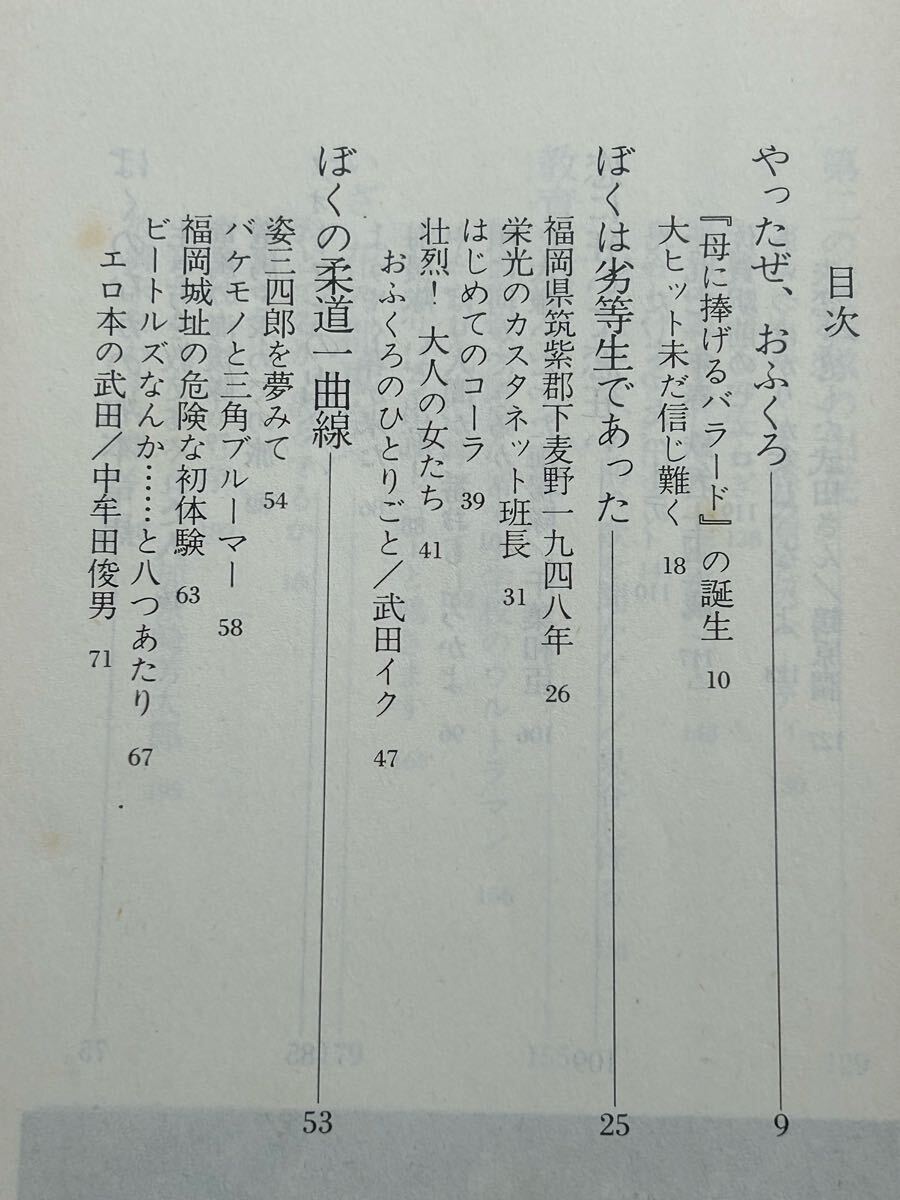 目次
やったぜ、おふくろ 9
『母に捧げるバラード』の誕生 10
大ヒット未だ信じ難く 18
ぼくは劣等生であった 25
福岡県筑紫郡下麦野一九四八年 26
栄光のカスタネット班長 31
はじめてのコーラ 39
壮烈！大人の女たち 41
おふくろのひとりごと／武田イク 47
ぼくの柔道一曲線 53
姿三四郎を夢みて 54
バケモノと三角ブルーマー 58
福岡城址の危険な初体験 63
ビートルズなんか……と八つあたり 67
エロ本の武田／中牟田俊男 71